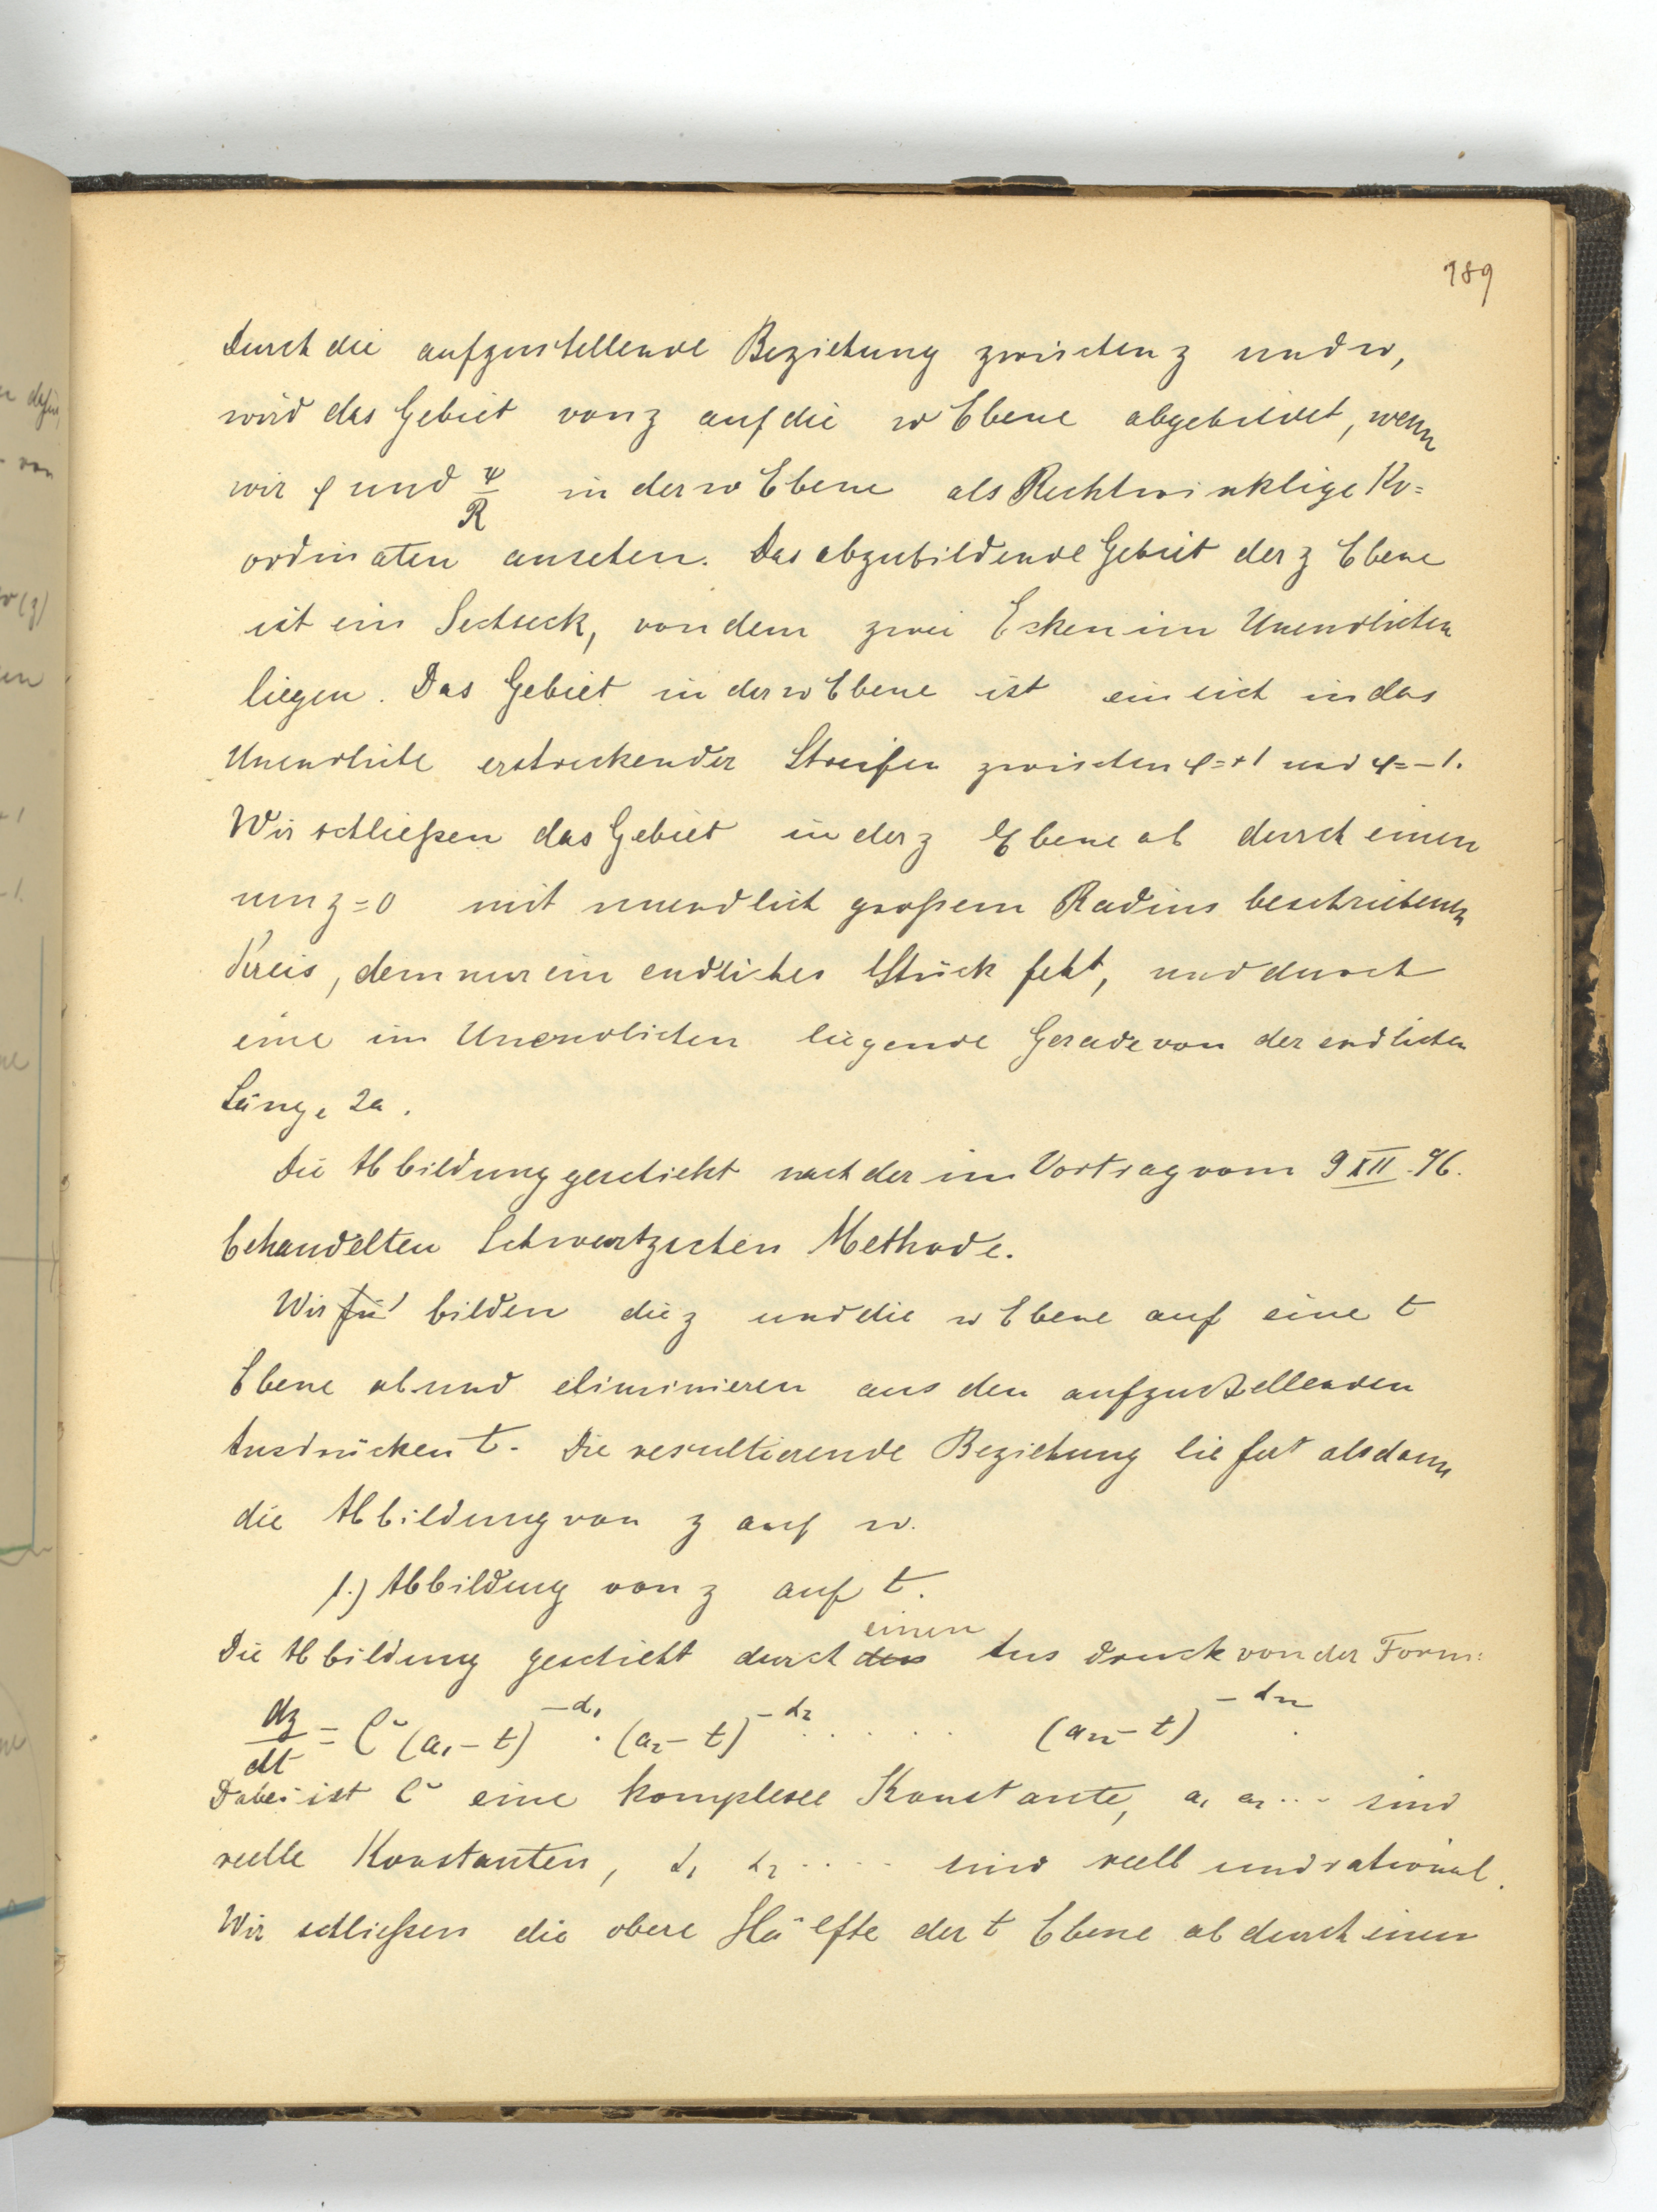 189
Durch die aufzustellende Beziehung zwischen z und w,
wird das Gebiet von z auf die w Ebene abgebildet, wenn
wir φ und ψ/R in der w Ebene als Rechtwinklige Ko=
ordinaten ansehen. Das abzubildende Gebiet der z Ebene
ist ein Sechseck, von dem zwei Ecken im Unendlichen
liegen. Das Gebiet in der w Ebene ist ein sich in das
Unendliche erstreckender Streifen zwischen φ=+1 und φ=-1.
Wir schließen das Gebiet in der z Ebene ab durch einen
um z=0 mit unendlich großem Radius beschriebenen
Kreis, dem nur ein endliches Stück fehlt, und durch
eine im Unendlichen liegende Gerade von der endlichen
Länge 2a.
Die Abbildung geschieht nach der im Vortrag vom 9 XII. 96.
behandelten Schwartzschen Methode.
Wir fü bilden die z und die w Ebene auf eine t
Ebene ab und eliminieren aus den aufzustellenden
Ausdrücken t. Die resultierende Beziehung liefert alsdann
die Abbildung von z auf w.
1.) Abbildung von z auf t.
einen
Die Abbildung geschieht durch den Ausdruck von der Form:
dz/dt = C (a₁-t)^-α₁ · (a₂-t)^-α₂ ..... (aₙ-t)^-αₙ.
Dabei ist C eine komplexe Konstante, a₁ a₂... sind
reelle Konstanten, α₁ α₂ .... sind reell und rational.
Wir schließen die obere Hälfte der t Ebene ab durch einen